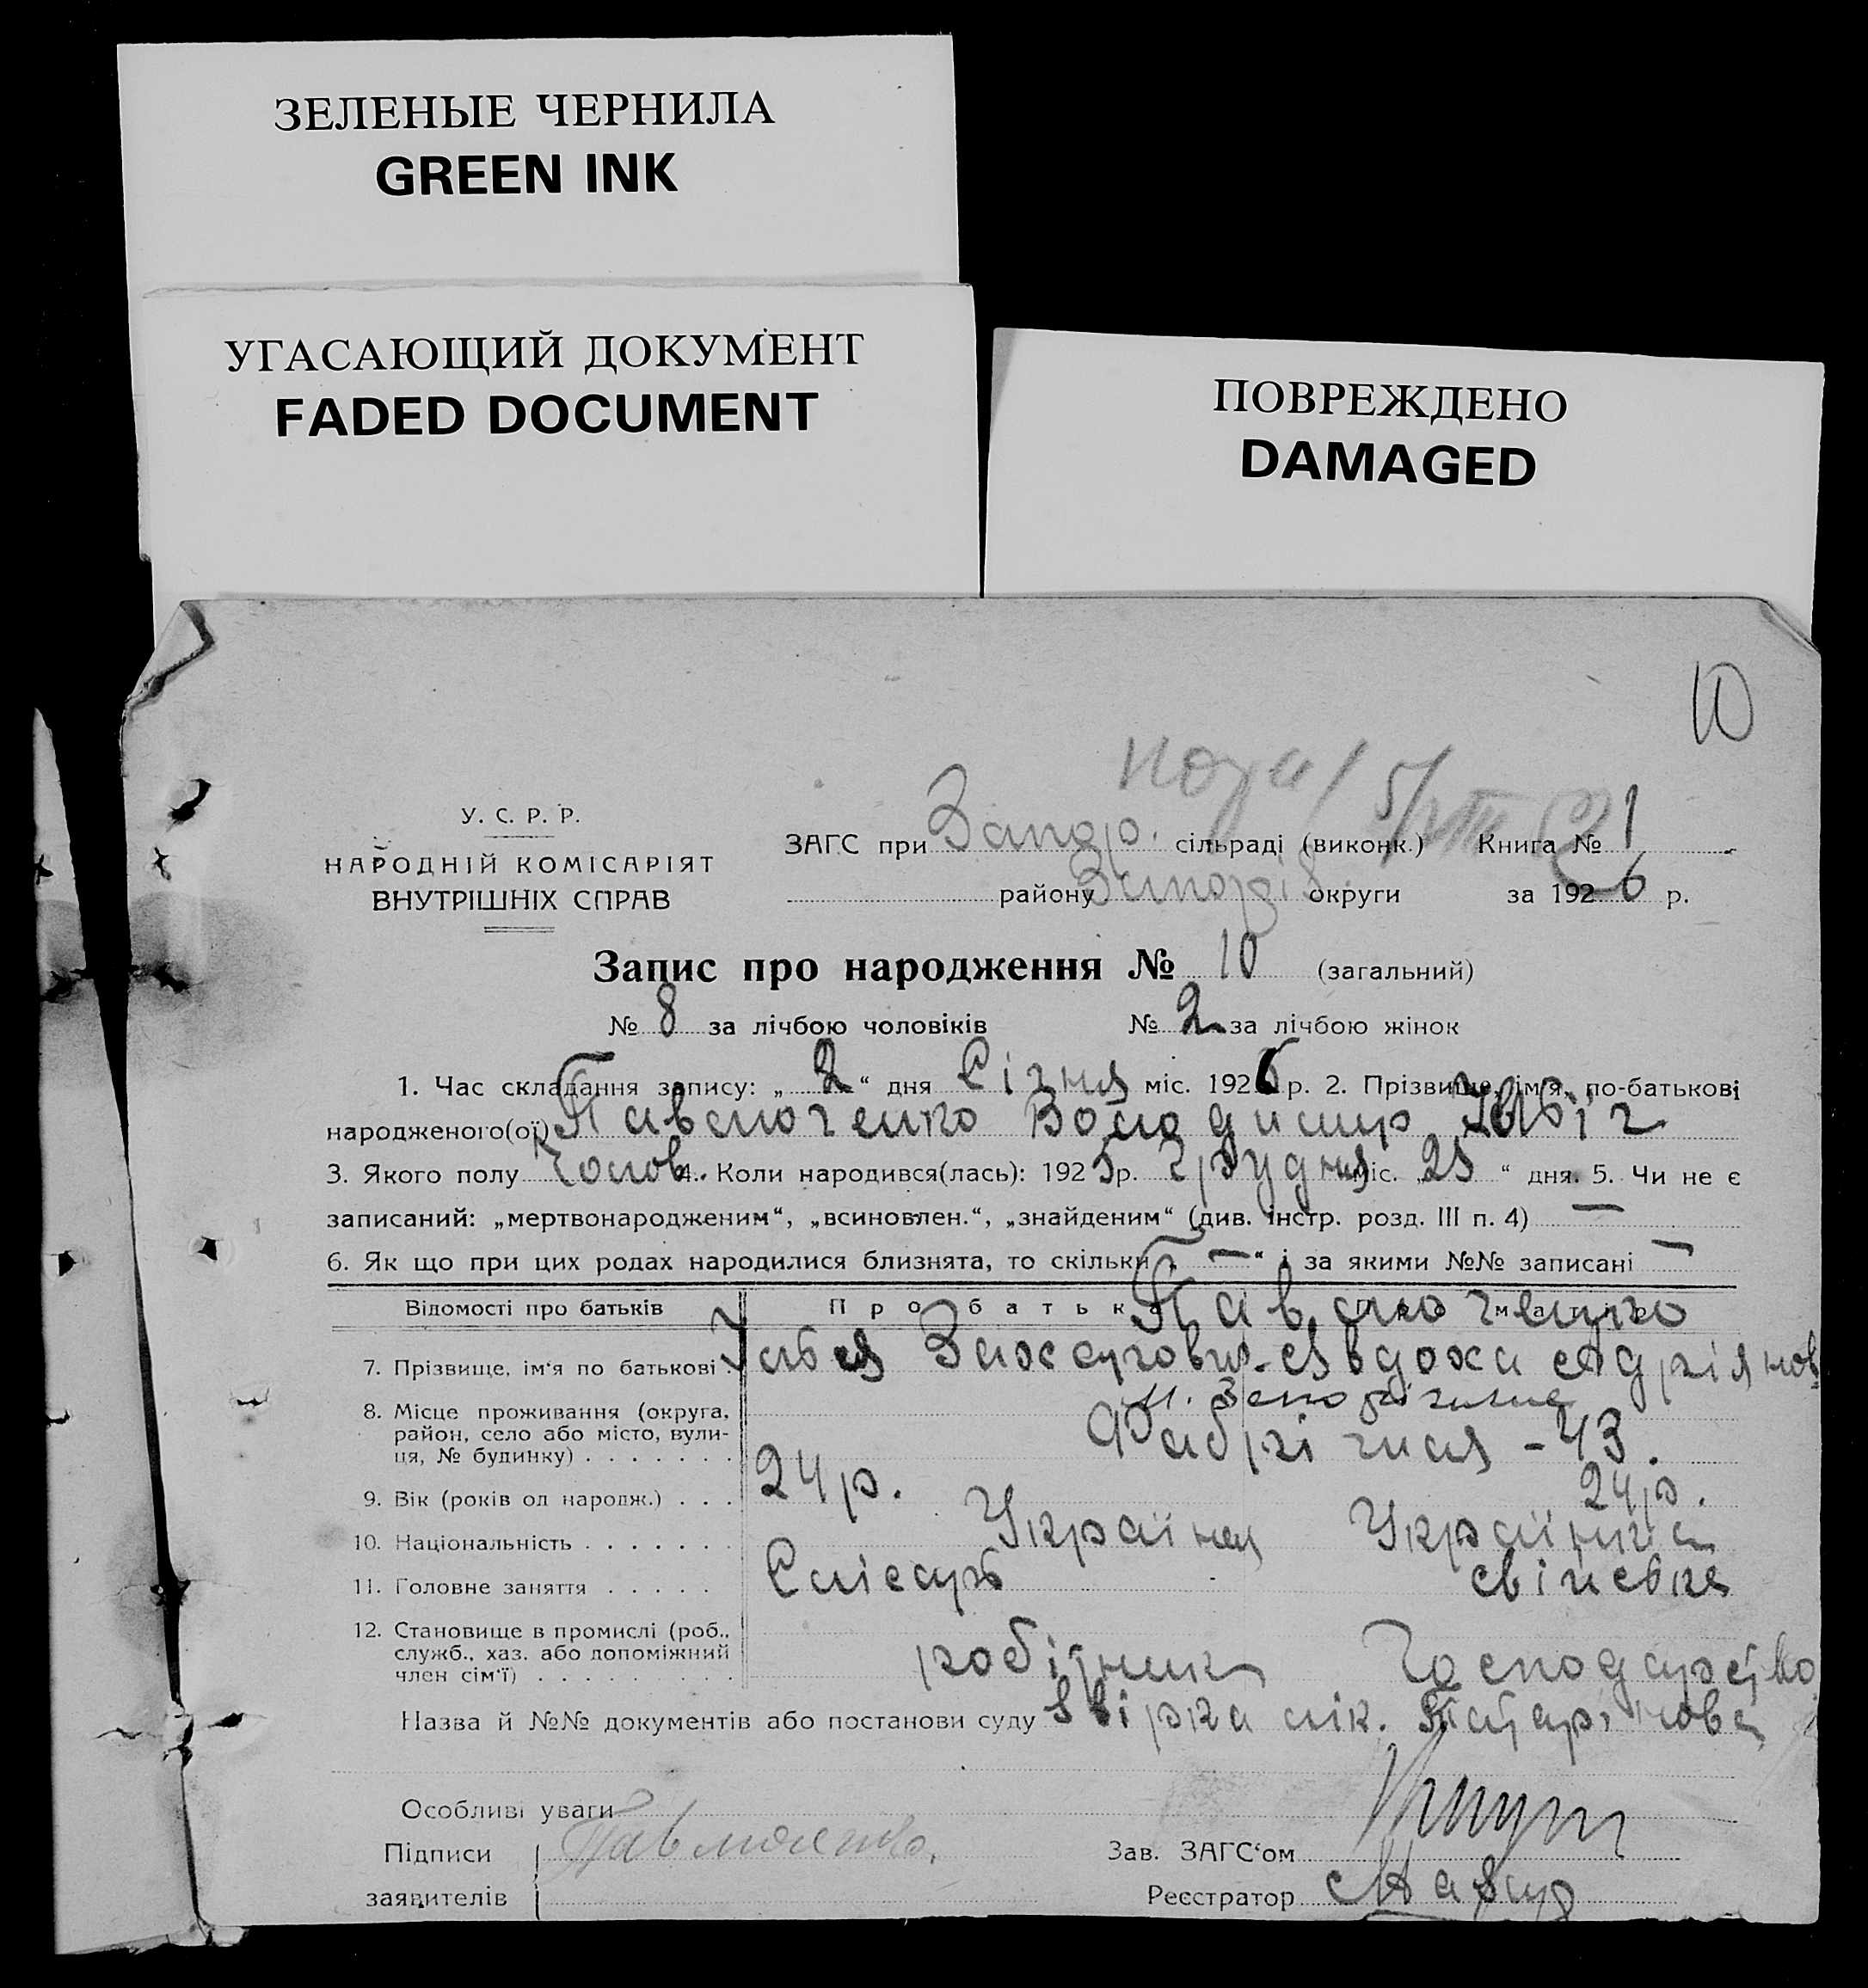 ЗЕЛЕНЫЕ ЧЕРНИЛА
GREEN INK
УГАСАЮЩИЙ ДОКУМЕНТ
FADED DOCUMENT
ПОВРЕЖДЕНО
DAMAGED
10
У. С. Р. Р.
НАРОДНІЙ КОМІСАРІЯТ
ВНУТРІШНІХ СПРАВ
ЗАГС при Запор. сільраді (виконк.) Книга № 1
району округи за 1926 р.
Запис про народження № 10 (загальний)
№ 8 за лічбою чоловіків № 2 за лічбою жінок
1. Час складання запису: „ 2 “ дня Січня міс. 1926 р. 2. Прізвище, ім'я, по-батькові
народженого(ої) Павлюченко Володимир Ілліч
3. Якого полу Чолов. 4. Коли народився(лась): 1925 р. Грудня міс. „ 25 “ дня. 5. Чи не є
записаний: „мертвонародженим“, „всиновлен.“, „знайденим“ (див. інстр. розд. III п. 4) —
6. Як що при цих родах народилися близнята, то скільки „ — “ і за якими №№ записані —
Відомості про батьків Про батька Про матір
Павлюченко
7. Прізвище, ім'я по батькові Ілля Захарович Явдоха Адріянов
8. Місце проживання (округа, район, село або місто, вулиця, № будинку) . . . . . . . м. Запоріжжя
Фабрична - 43.
9. Вік (років од народж.) . . . 24 р. 24 р.
10. Національність . . . . . . . Українец Українка
11. Головне заняття . . . . . Слісарь
12. Становище в промислі (роб., служб., хаз. або допоміжний член сім'ї) . . . . . . . . . робітник Господарство
Назва й №№ документів або постанови суду лік.
Особливі уваги
Підписи Павлюченко.
заявителів
Зав. ЗАГС'ом
Реєстратор Мазур